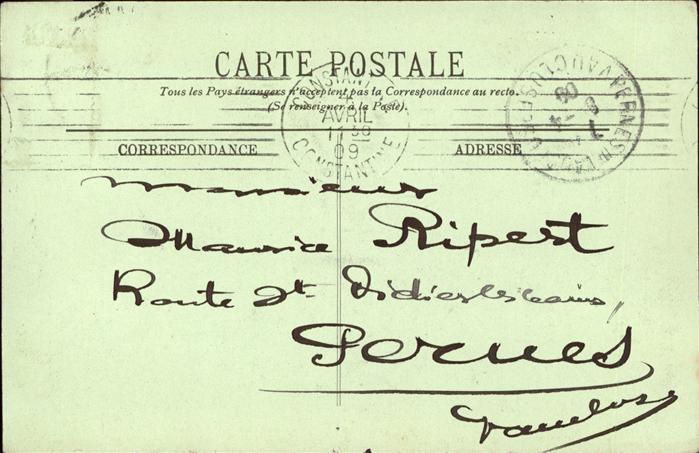 CARTE POSTALE
Tous les Pays étrangers n'acceptent pas la Correspondance au recto.
(Se renseigner à la Poste).
CORRESPONDANCE ADRESSE
CONSTANTINE
AVRIL
11 30
09
CONSTANTINE
PERNES VAUCLUSE
09
Monsieur
Maurice Ripert
Route St Didier les bains,
Pernes
Vaucluse